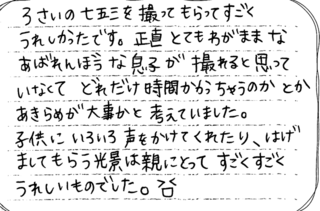 3さいの七五三を撮ってもらってすごく
うれしかったです。正直とてもわがままな
あばれんぼうな息子が撮れると思って
いなくてどれだけ時間かかっちゃうのかとか
あきらめが大事かと考えていました。
子供にいろいろ声をかけてくれたり、はげ
ましてもらう光景は親にとってすごくすごく
うれしいものでした。